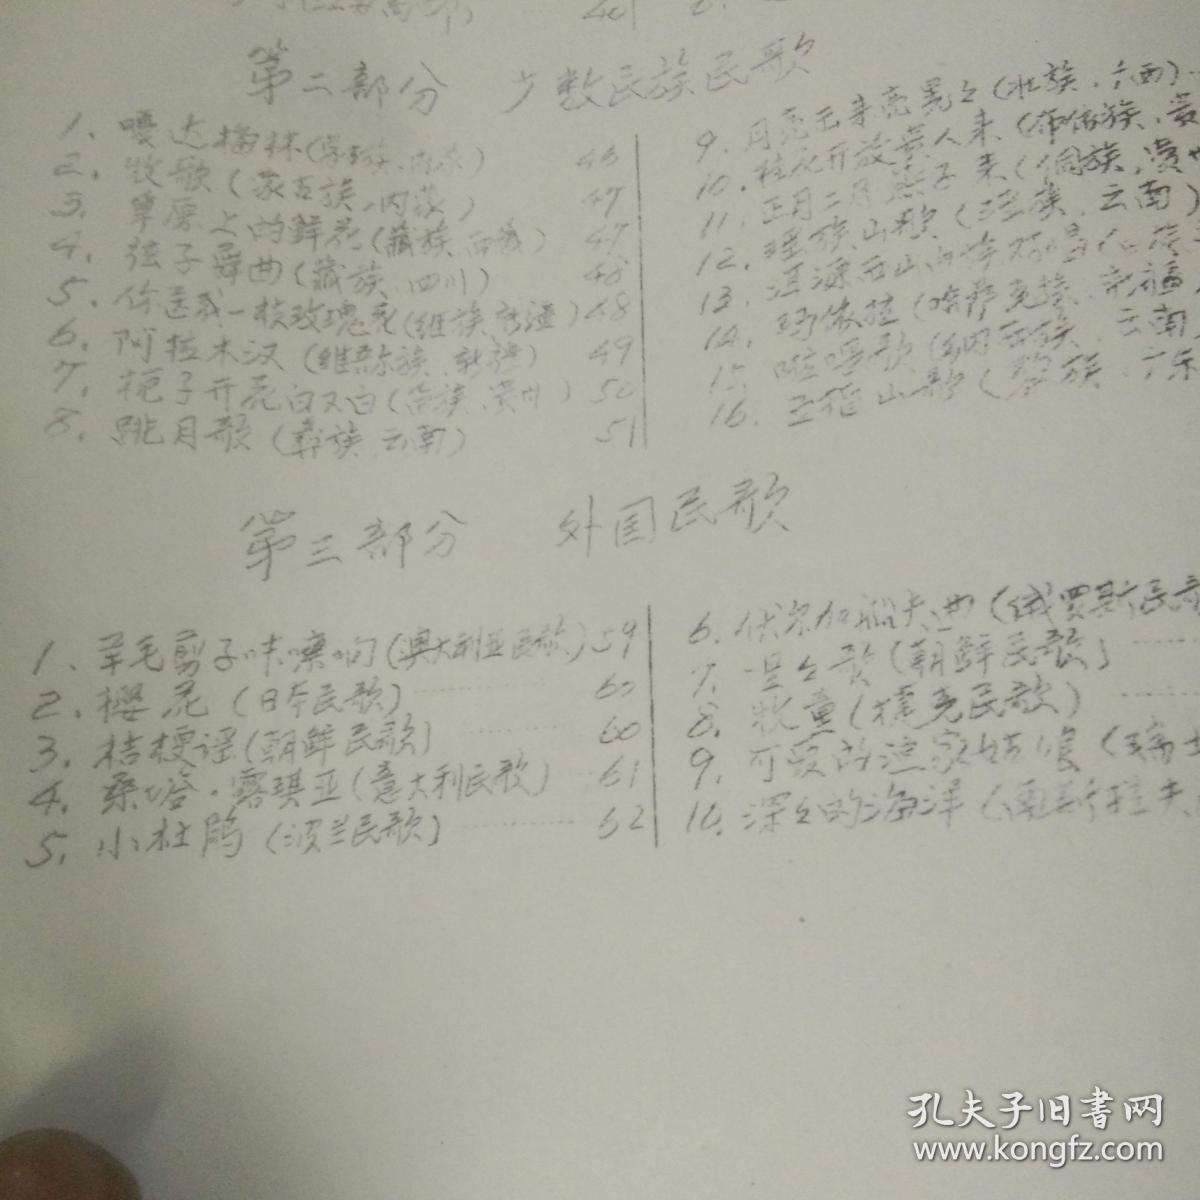 第二部分 少数民族民歌
1. 嘎达梅林(蒙古族、内蒙) 46
2. 牧歌(蒙古族、内蒙) 47
3. 草原上的鲜花(藏族、西藏) 47
4. 弦子舞曲(藏族、四川) 48
5. 你送我一枝玫瑰花(维族、新疆) 48
6. 阿拉木汉(维吾尔族、新疆) 49
7. 栀子开花白又白(苗族、贵州) 50
8. 跳月歌(彝族、云南) 51
9. 月亮出来亮晃々(壮族、广西)
10. 桂花开放贵人来(布依族、贵
11. 正月二月燕子来(侗族、贵州
12. 瑶族山歌(瑶族、云南)
13. 洱源西山
14. 玛依拉(哈萨克族、新疆
15. 啦哩歌(纳西族、云南
16. 五指山歌(黎族、广东
第三部分 外国民歌
1. 羊毛剪子咔嚓响(澳大利亚民歌) 59
2. 樱花(日本民歌) 60
3. 桔梗谣(朝鲜民歌) 60
4. 桑塔·露琪亚(意大利民歌) 61
5. 小杜鹃(波兰民歌) 62
6. 伏尔加船夫曲(俄罗斯民歌
7. 里々歌(朝鲜民歌)
8. 牧童(捷克民歌)
9. 可爱的渔家姑娘(瑞士
10. 深々的海洋(南斯拉夫
孔夫子旧书网
www.kongfz.com